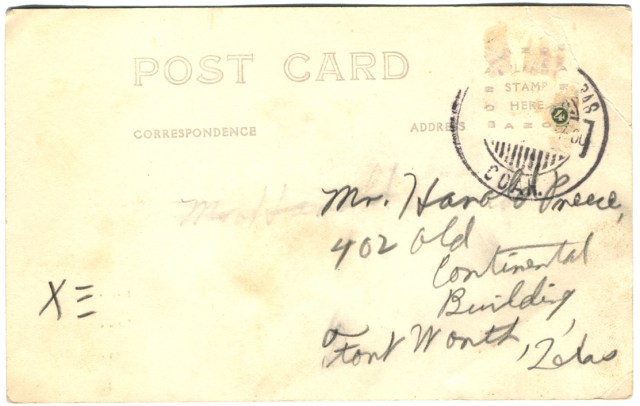 POST CARD
CORRESPONDENCE
ADDRESS
PLACE
STAMP
HERE
AZO
COAH.
Mr. Harold Preece,
402 Old
Continental
Building,
Fort Worth, Texas
X